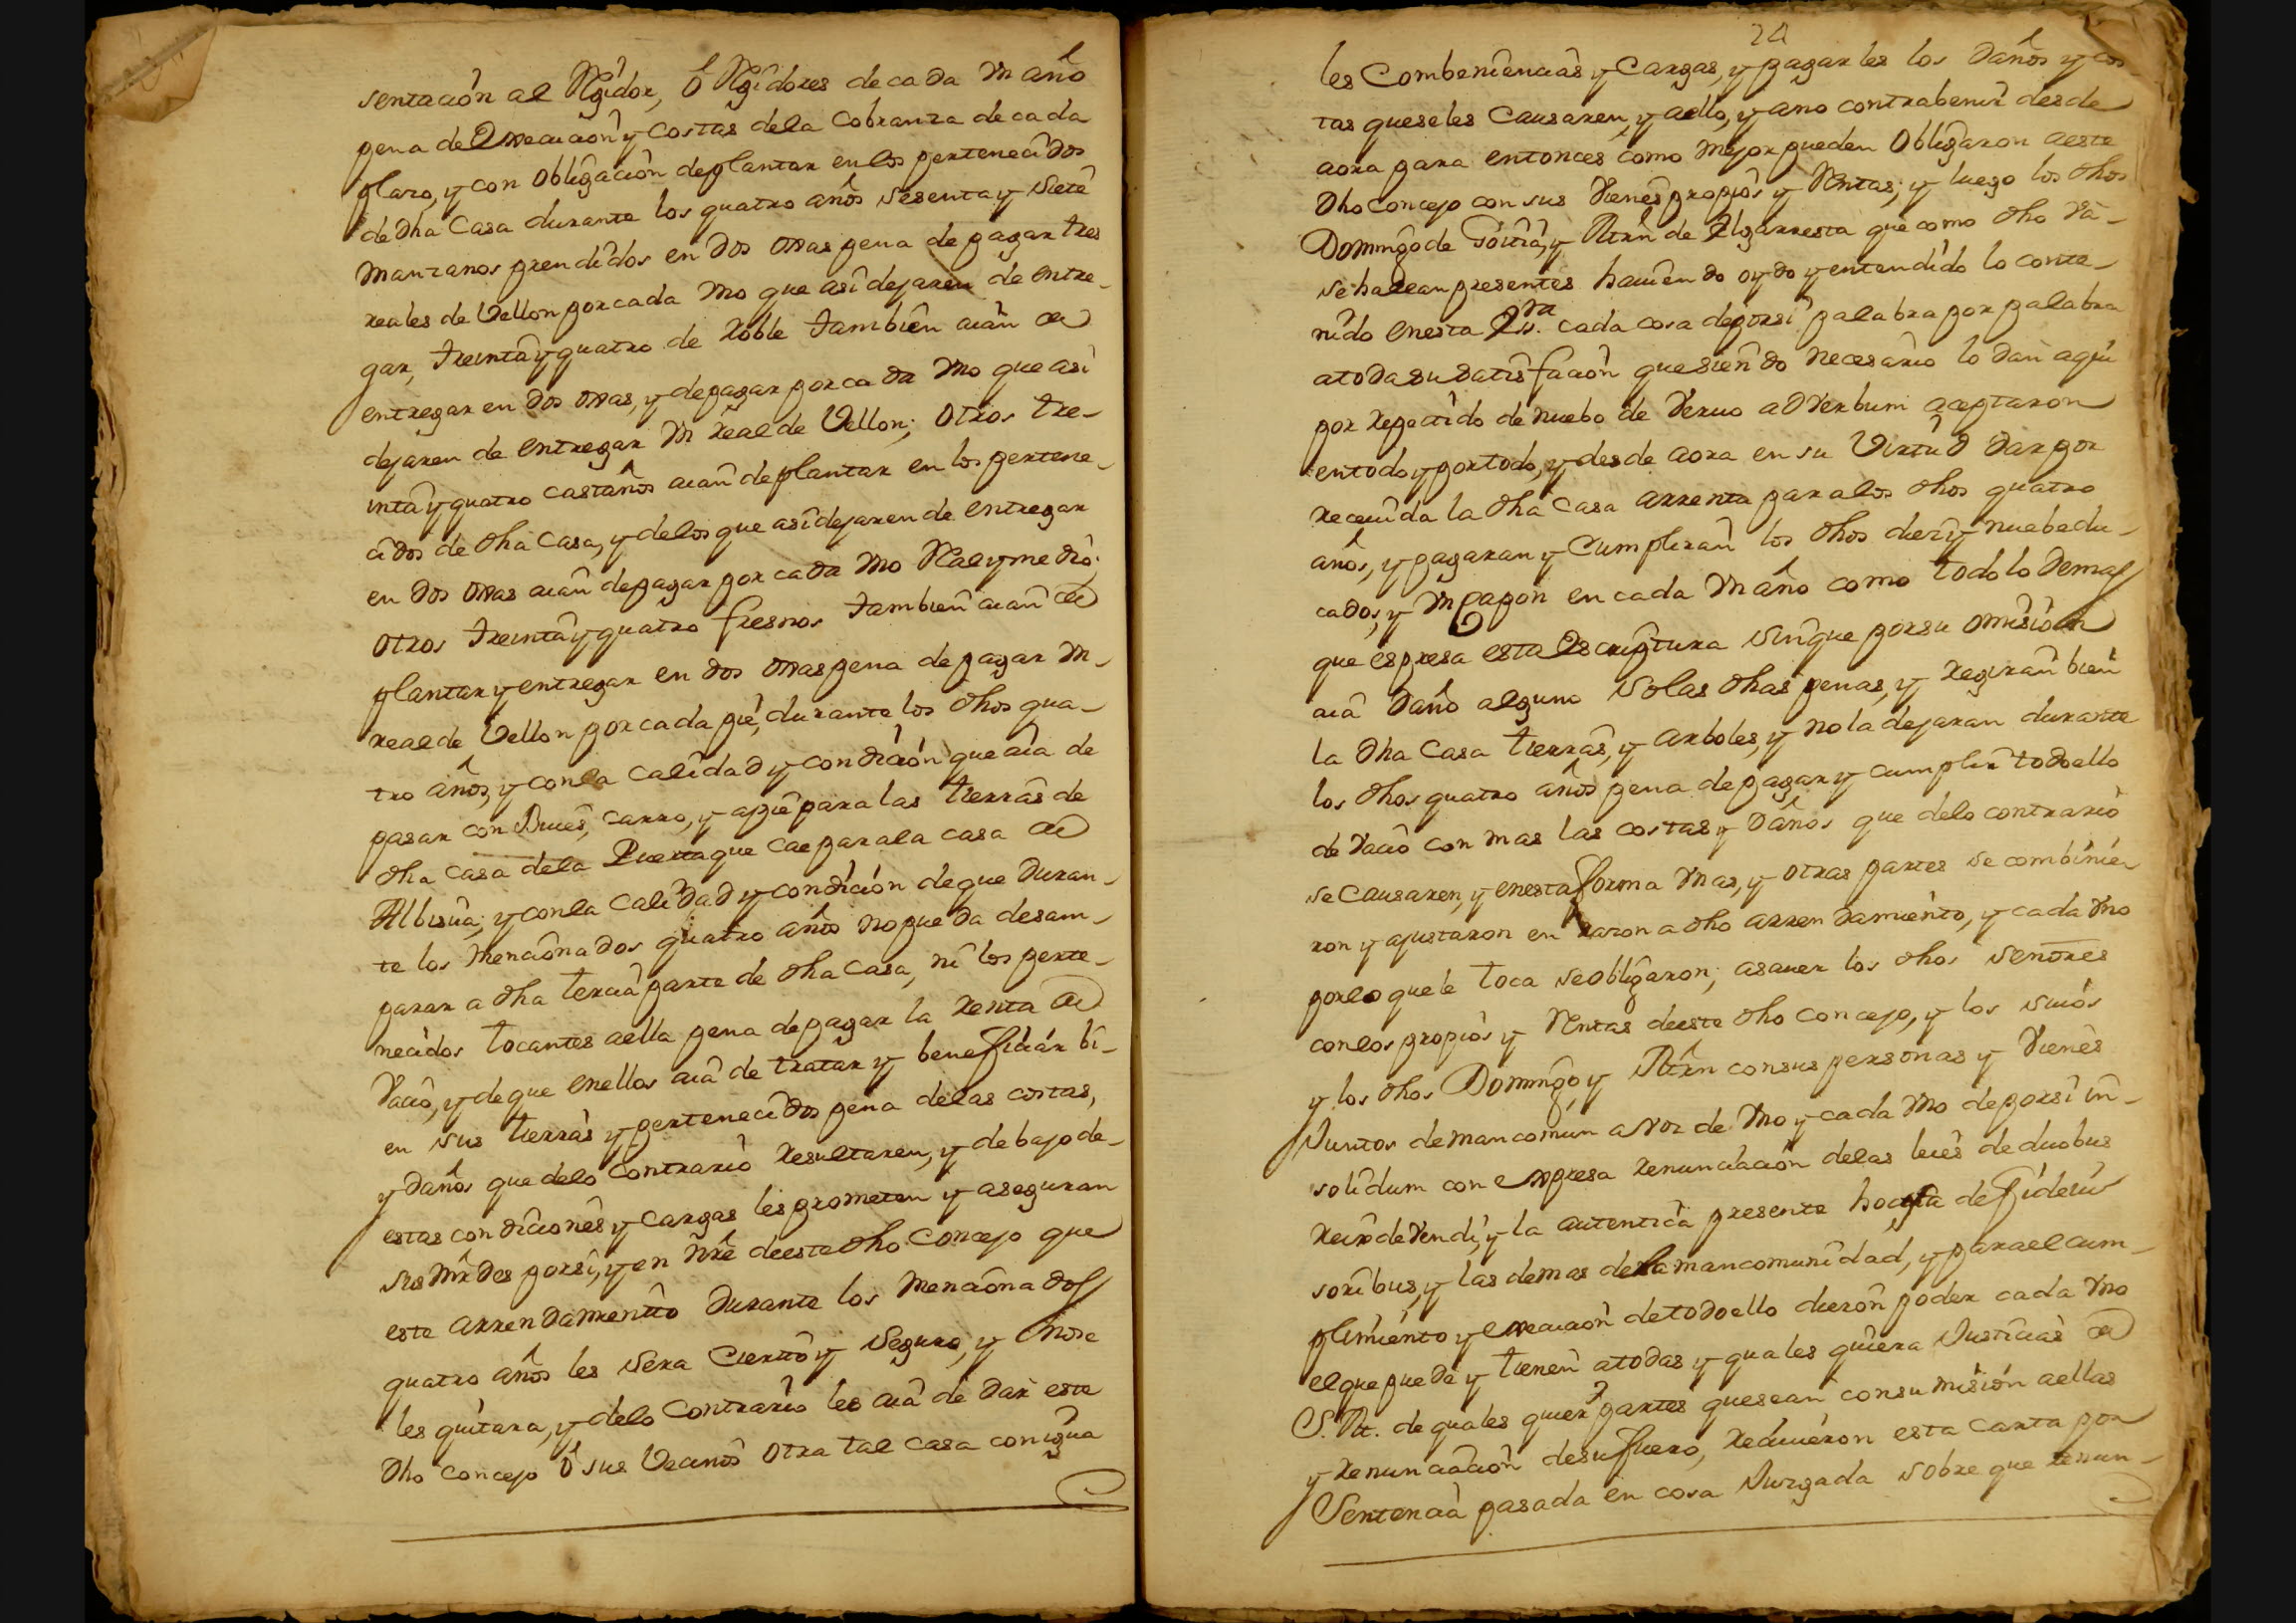 sentación al Rgidor, ô Rgidores de cada Un año
pena de Execucion y costas dela Cobranza de cada
plazo, y con obligacion deplantar enlos pertenecidos
de dha Casa durante los quatro años sesenta y siete
manzanos prendidos en dos ojas pena de pagar tres
reales de Vellon por cada Uno que asi dejaren de entre-
gar, treinta y quatro de roble tambien aian de
entregar en dos ojas, y depagar por cada Uno que asi
dejaren de entregar Un real de Vellon; otros tre-
inta y quatro castaños aian de plantar en los pertene-
cidos de dha Casa, y delos que asi dejaren de entregar
en dos ojas aian depagar por cada Uno Real y medio;
otros treinta y quatro fresnos tambien aian de
plantar y entregar en dos ojas pena de pagar Un
real de Vellon por cada pie, durante los dhos qua-
tro años, y conla calidad y condicion que aia de
pasar con Bueis, carro, y apie para las tierras de
dha casa dela Puerta que cae para la casa de
Albisua; y conla calidad y condicion deque duran-
te los mencionados quatro años no pueda desam-
parar a dha tercia parte de dha Casa, ni los perte-
necidos tocantes aella pena depagar la renta de
Vacio, y de que enellos aia de tratar y beneficiar bi-
en sus tierras y pertenecidos pena delas costas,
y daños que delo contrario resultaren, y debajo de-
estas condiciones y cargas les prometen y aseguran
sus mrdes porsi, y en nre deeste dho Concejo que
este arrendamiento durante los mencionados
quatro años les sera cierto y seguro, y nose
les quitara, y delo contrario les aia de dar este
dho concejo ô sus Vecinos otra tal casa con igua
24
les Combeniencias y Cargas, y pagarles los daños y cos
tas queseles causaren, y aello, y ano contrabenir desde
aora para entonces como mejor pueden obligaron aeste
dho concejo con sus Vienes propios y Rentas; y luego los dhos
Domingo de Goitia, y Mrn de Algarresta que como dho va
se hallan presentes haviendo oydo y entendido lo conte-
nido enesta Essra. cada cosa deporsi palabra por palabra
atoda su satisfacion que siendo necesario lo dan aqui
por repetido de nuebo de Vervo ad Verbum aceptaron
entodo y por todo, y desde aora en su Virtud dan por
recevida la dha casa arrenta para los dhos quatro
años, y pagaran y cumpliran los dhos diez y nuebe du-
cados, y Un Capon en cada Un año como todo lo demas
que espresa esta escriptura sin que por su omision
aia daño alguno so las dhas penas, y regiran bien
la dha casa tierras, y arboles, y nola dejaran durante
los dhos quatro años pena de pagar y cumplir todo ello
de Vacio con mas las costas y daños que delo contrario
se causaren, y enesta forma Unas, y otras partes se combinie
ron y ajustaron en razon a dho arrendamiento, y cada Uno
por lo que le toca se obligaron; asaver los dhos señores
conlos propios y Rentas deeste dho concejo, y los suios
y los dhos Domingo, y Mrn consus personas y Vienes
Juntos demancomun a voz de Uno y cada Uno deporsi in-
solidum con expresa renunciacion delas leies de duobus
reis de Vendi, y la autentica presente hocita de fideiu
soribus, y las demas dela mancomunidad, y para el cum-
plimiento y execucion de todo ello dieron poder cada Uno
el que puede y tienen atodas y quales quiera Justicias de
S. M. de quales quier partes quesean consu mision aellas
y renunciacion desu fuero, recivieron esta carta por
Sentencia pasada en cosa Juzgada sobre que renun-